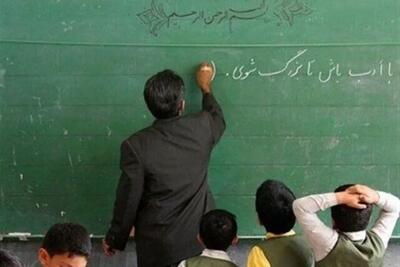 بسم الله الرحمن الرحیم
با أدب باش تا بزرگ شوی. (